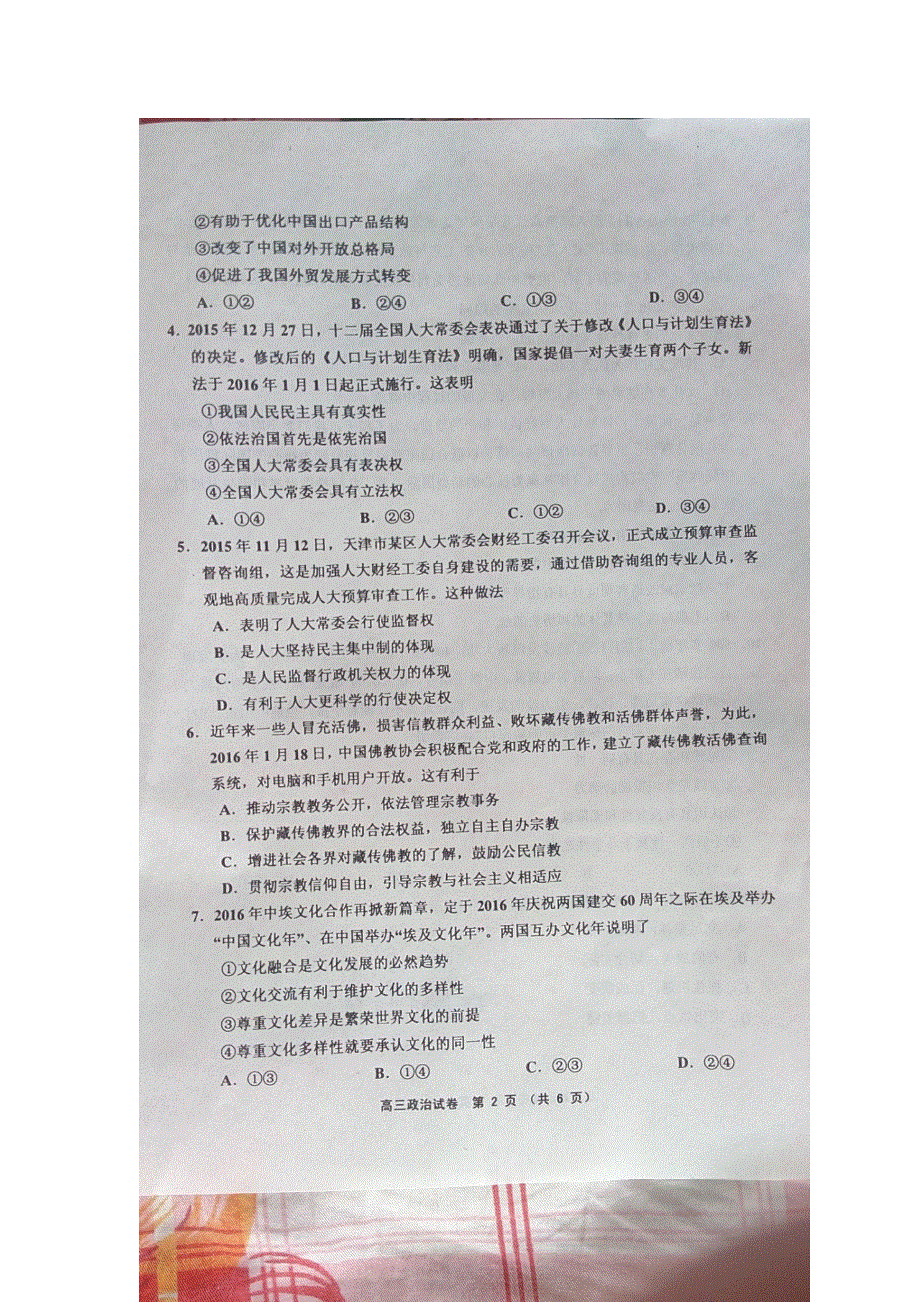 ②有助于优化中国出口产品结构
③改变了中国对外开放总格局
④促进了我国外贸发展方式转变
A．①② B．②④ C．①③ D．③④
4．2015 年 12 月 27 日，十二届全国人大常委会表决通过了关于修改《人口与计划生育法》
的决定。修改后的《人口与计划生育法》明确，国家提倡一对夫妻生育两个子女。新
法于 2016 年 1 月 1 日起正式施行。这表明
①我国人民民主具有真实性
②依法治国首先是依宪治国
③全国人大常委会具有表决权
④全国人大常委会具有立法权
A．①④ B．②③ C．①② D．③④
5．2015 年 11 月 12 日，天津市某区人大常委会财经工委召开会议，正式成立预算审查监
督咨询组，这是加强人大财经工委自身建设的需要，通过借助咨询组的专业人员，客
观地高质量完成人大预算审查工作。这种做法
A．表明了人大常委会行使监督权
B．是人大坚持民主集中制的体现
C．是人民监督行政机关权力的体现
D．有利于人大更科学的行使决定权
6．近年来一些人冒充活佛，损害信教群众利益、败坏藏传佛教和活佛群体声誉，为此，
2016 年 1 月 18 日，中国佛教协会积极配合党和政府的工作，建立了藏传佛教活佛查询
系统，对电脑和手机用户开放。这有利于
A．推动宗教教务公开，依法管理宗教事务
B．保护藏传佛教界的合法权益，独立自主自办宗教
C．增进社会各界对藏传佛教的了解，鼓励公民信教
D．贯彻宗教信仰自由，引导宗教与社会主义相适应
7．2016 年中埃文化合作再掀新篇章，定于 2016 年庆祝两国建交 60 周年之际在埃及举办
“中国文化年”、在中国举办“埃及文化年”。两国互办文化年说明了
①文化融合是文化发展的必然趋势
②文化交流有利于维护文化的多样性
③尊重文化差异是繁荣世界文化的前提
④尊重文化多样性就要承认文化的同一性
A．①③ B．①④ C．②③ D．②④
高三政治试卷 第 2 页 （共 6 页）